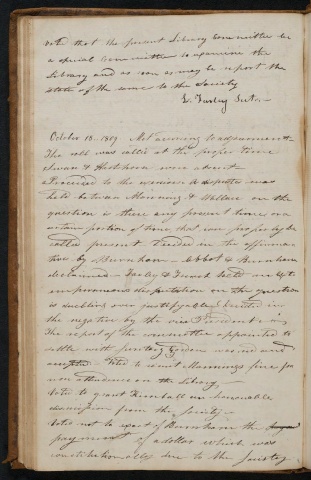 vote that the present Library Committee be
a special Committee to examine the
Library and as soon as may be report the
state of the same to the Society
L. Farley Secty.
October 18. 1809. Met according to adjournment
The roll was called at the proper time
Swan & were absent
Proceeded to the exercises A dispute was
held between Manning & Wallace on the
question is there any present time or a
certain portion of time that can properly be
called present Decided in the affirmative
by Burnham - Abbot & Burnham
declaimed - Farley & held an Ex
temporaneous disputation on the question
is duelling ever justifyable Decided in
the negative by the vice President
The report of the committee appointed to
settle with was read and
accepted Voted to remit Mannings fine for
non attendance on the Library
Voted to grant Kimball an honorable
dismission from the Society
Voted not to exact of Burnham the
payment of a dollar which was
constitutionally due to the Society